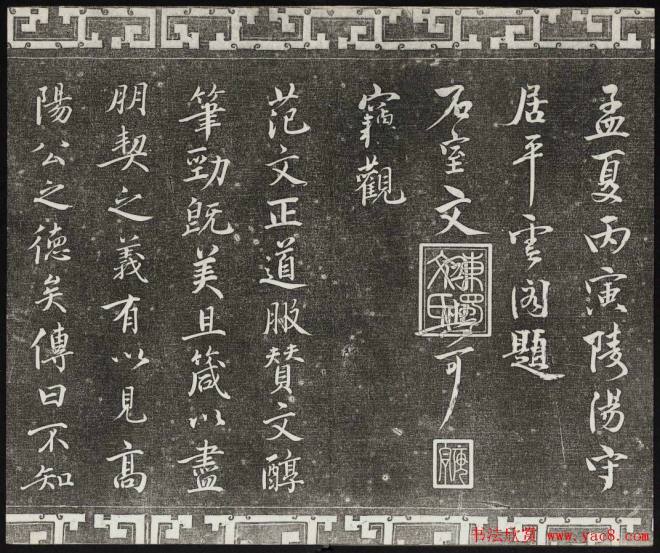 孟夏丙寅陵陽守
居平雲閣題
石室文與可
竊觀
范文正道服贊文醇
筆勁既美且箴以盡
朋契之義有以見高
陽公之德矣傳曰不知
书法欣赏 www.yac8.com